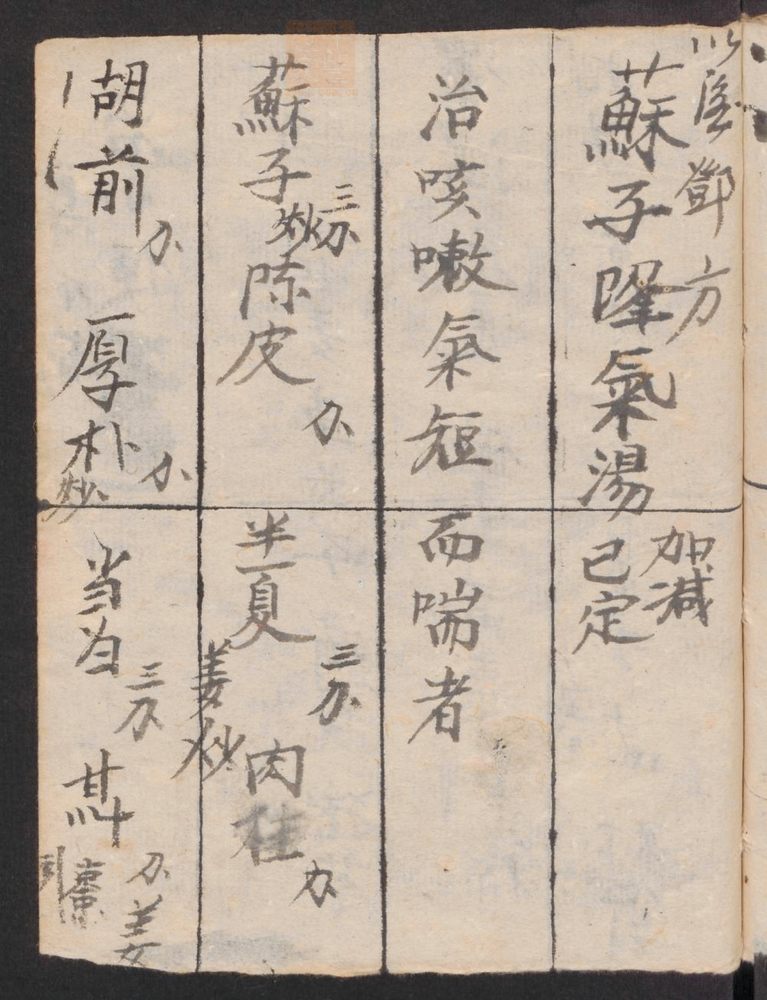 鄧方
蘇子降氣湯
加減
已定
治咳嗽氣短而喘者
蘇子
三分
炒
陈皮
分
半夏
三分
姜炒
肉桂
分
胡前
分
厚朴
分
炒
当
三分
分
姜